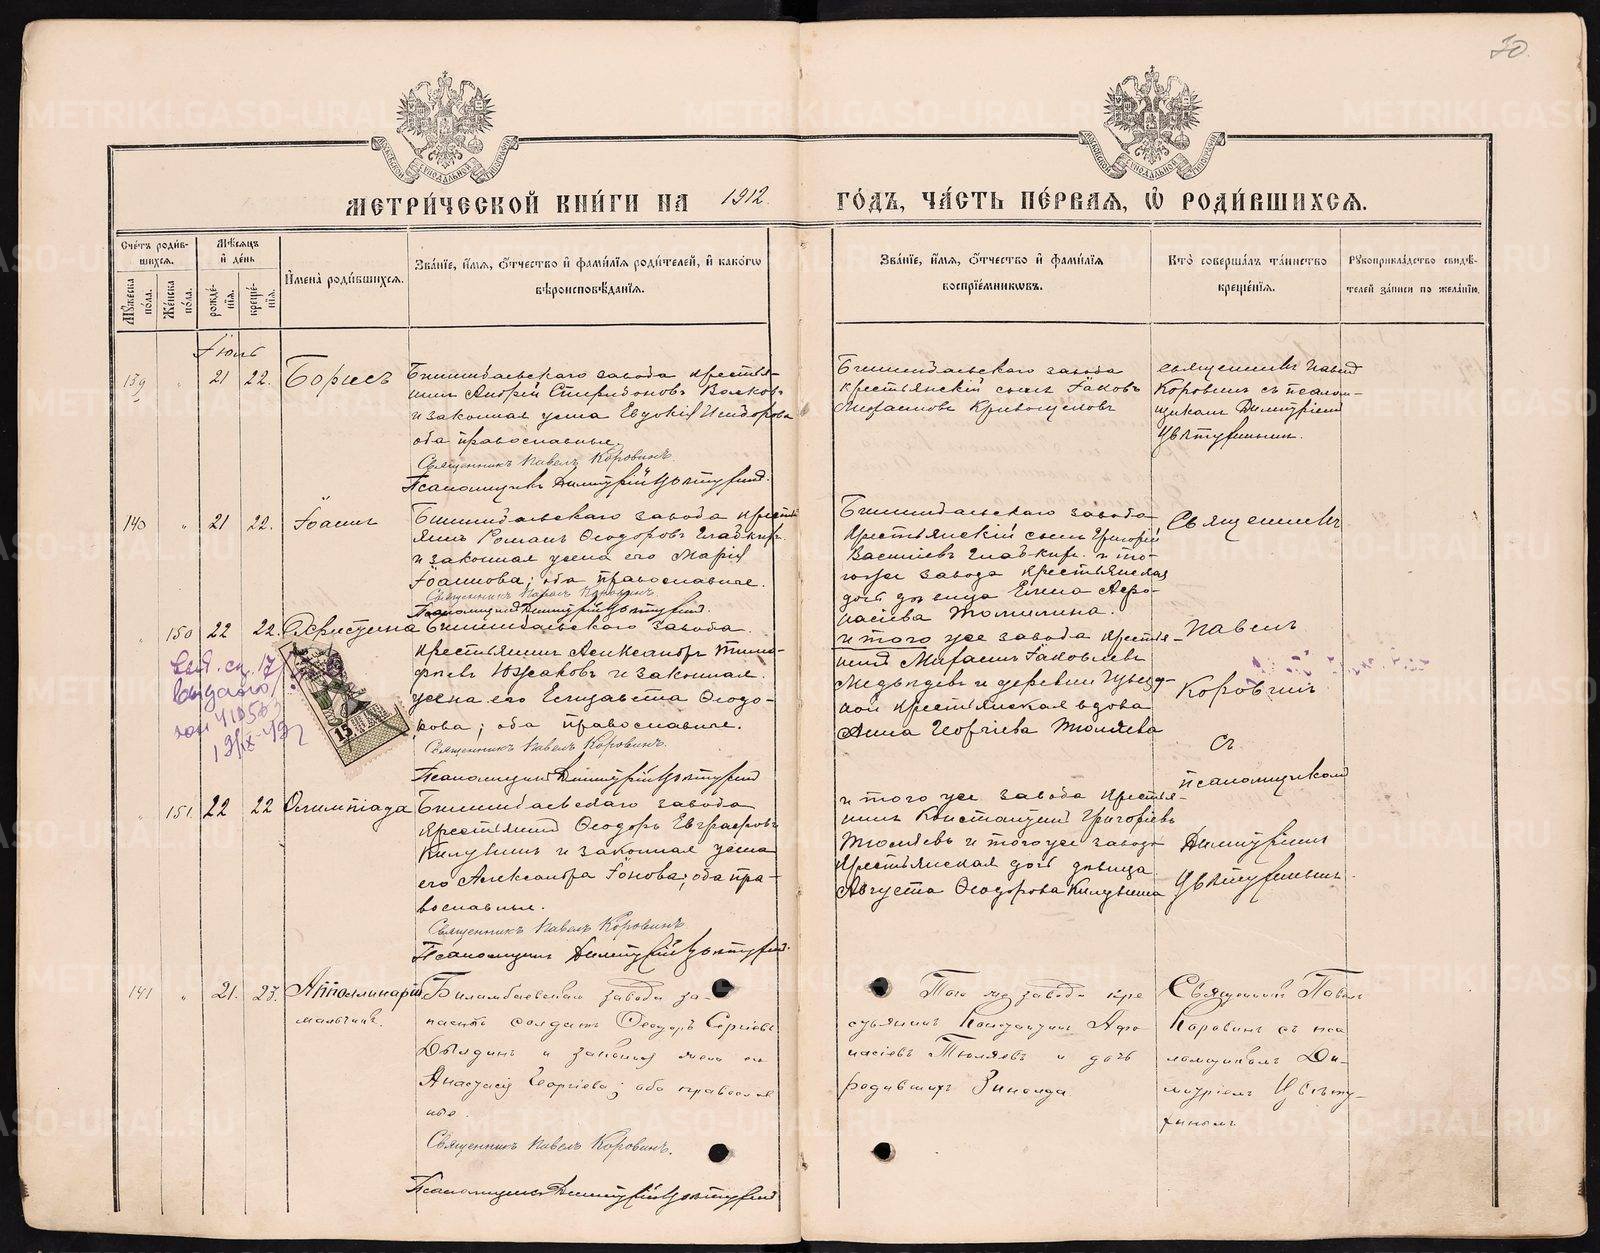 70.
МЕТРИ́ЧЕСКОЙ КНИ́ГИ НА 1912 ГО́ДЪ, ЧА́СТЬ ПЕ́РВАЯ, Ѽ РОДИ́ВШИХСЯ.
Сче́тъ роди́в-
шихся.
Му́жеска по́ла.
Же́нска по́ла.
Мѣ́сяцъ
и҆ де́нь
рожде́-
нїѧ.
креще́-
нїѧ.
И҆мена̀ роди́вшихся.
Зва́нїе, и҆́мѧ, ѻ҆́тчество и҆ фами́лїѧ роди́телей, и҆ како́гѡ
вѣроисповѣ́данїѧ.
Зва́нїе, и҆́мѧ, ѻ҆́тчество и҆ фами́лїѧ
воспрїе́мниковъ.
Кто̀ соверша́лъ та́инство
креще́нїѧ.
Рꙋкоприкла́дство свидѣ́-
телей за́писи по жела́нїю.
Іюль
139 " 21 22. Борисъ
Билимбаевскаго завода крестья-
нинъ Андрей Спиридоновъ Волковъ
и законная жена Евдокія Исидорова
оба православные.
Священникъ Павелъ Коровинъ.
Псаломщикъ Димитрій Цвѣтухинъ.
Билимбаевскаго завода
крестьянскій сынъ Іаковъ
Кривощековъ
священникъ Павелъ
Коровинъ съ псалом-
щикомъ Димитріемъ
Цвѣтухинымъ.
140 " 21 22. Іоаннъ
Билимбаевскаго завода кресть
янинъ Романъ Ѳеодоровъ
и законная жена его Марія
Іоаннова; оба православные.
Священникъ Павелъ Коровинъ.
Псаломщикъ Димитрій Цвѣтухинъ.
Билимбаевскаго завода
крестьянскій сынъ Григорій
Васильевъ и то-
гоже завода крестьянская
дочь дѣвица Елена Аѳа-
насіева
Священникъ
" 150 22 22. Христина
Билимбаевскаго завода
крестьянинъ Александръ Тимо-
феевъ Южаковъ и законная
жена его Елизавета Ѳеодо-
рова; оба православные.
Священникъ Павелъ Коровинъ.
Псаломщикъ Димитрій Цвѣтухинъ
и того же завода крестья-
нинъ Іаковлевъ
Медвѣдевъ и деревни
крестьянская вдова
Анна Георгіева Тюляева
Павелъ
Коровинъ
съ
выдано
15
" 151. 22 22 Олимпіада
Билимбаевскаго завода
крестьянинъ Ѳеодоръ Евграфовъ
и законная жена
его Александра Іонова; оба пра-
вославные.
Священникъ Павелъ Коровинъ
Псаломщикъ Димитрій Цвѣтухинъ.
и того же завода крестья-
нинъ Константинъ Григорьевъ
Тюляевъ и того же завода
крестьянская дочь дѣвица
Августа Ѳеодорова
псаломщикомъ
Димитріемъ
Цвѣтухинымъ.
141 " 21. 23. Апполинарій
мальчикъ.
Билимбаевскаго завода за-
пасный солдатъ Ѳеодоръ Сергіевъ
и законная жена его
Анастасія Георгіева; оба православ
ные.
Священникъ Павелъ Коровинъ.
Псаломщикъ Димитрій Цвѣтухинъ
Того же завода кре
стьянинъ Константинъ Афо
насіевъ Тюляевъ и дочь
родившихъ Зинаида
Священникъ Павелъ
Коровинъ съ пса
ломщикомъ Ди-
митріемъ Цвѣту-
хинымъ
METRIKI.GASO-URAL.RU